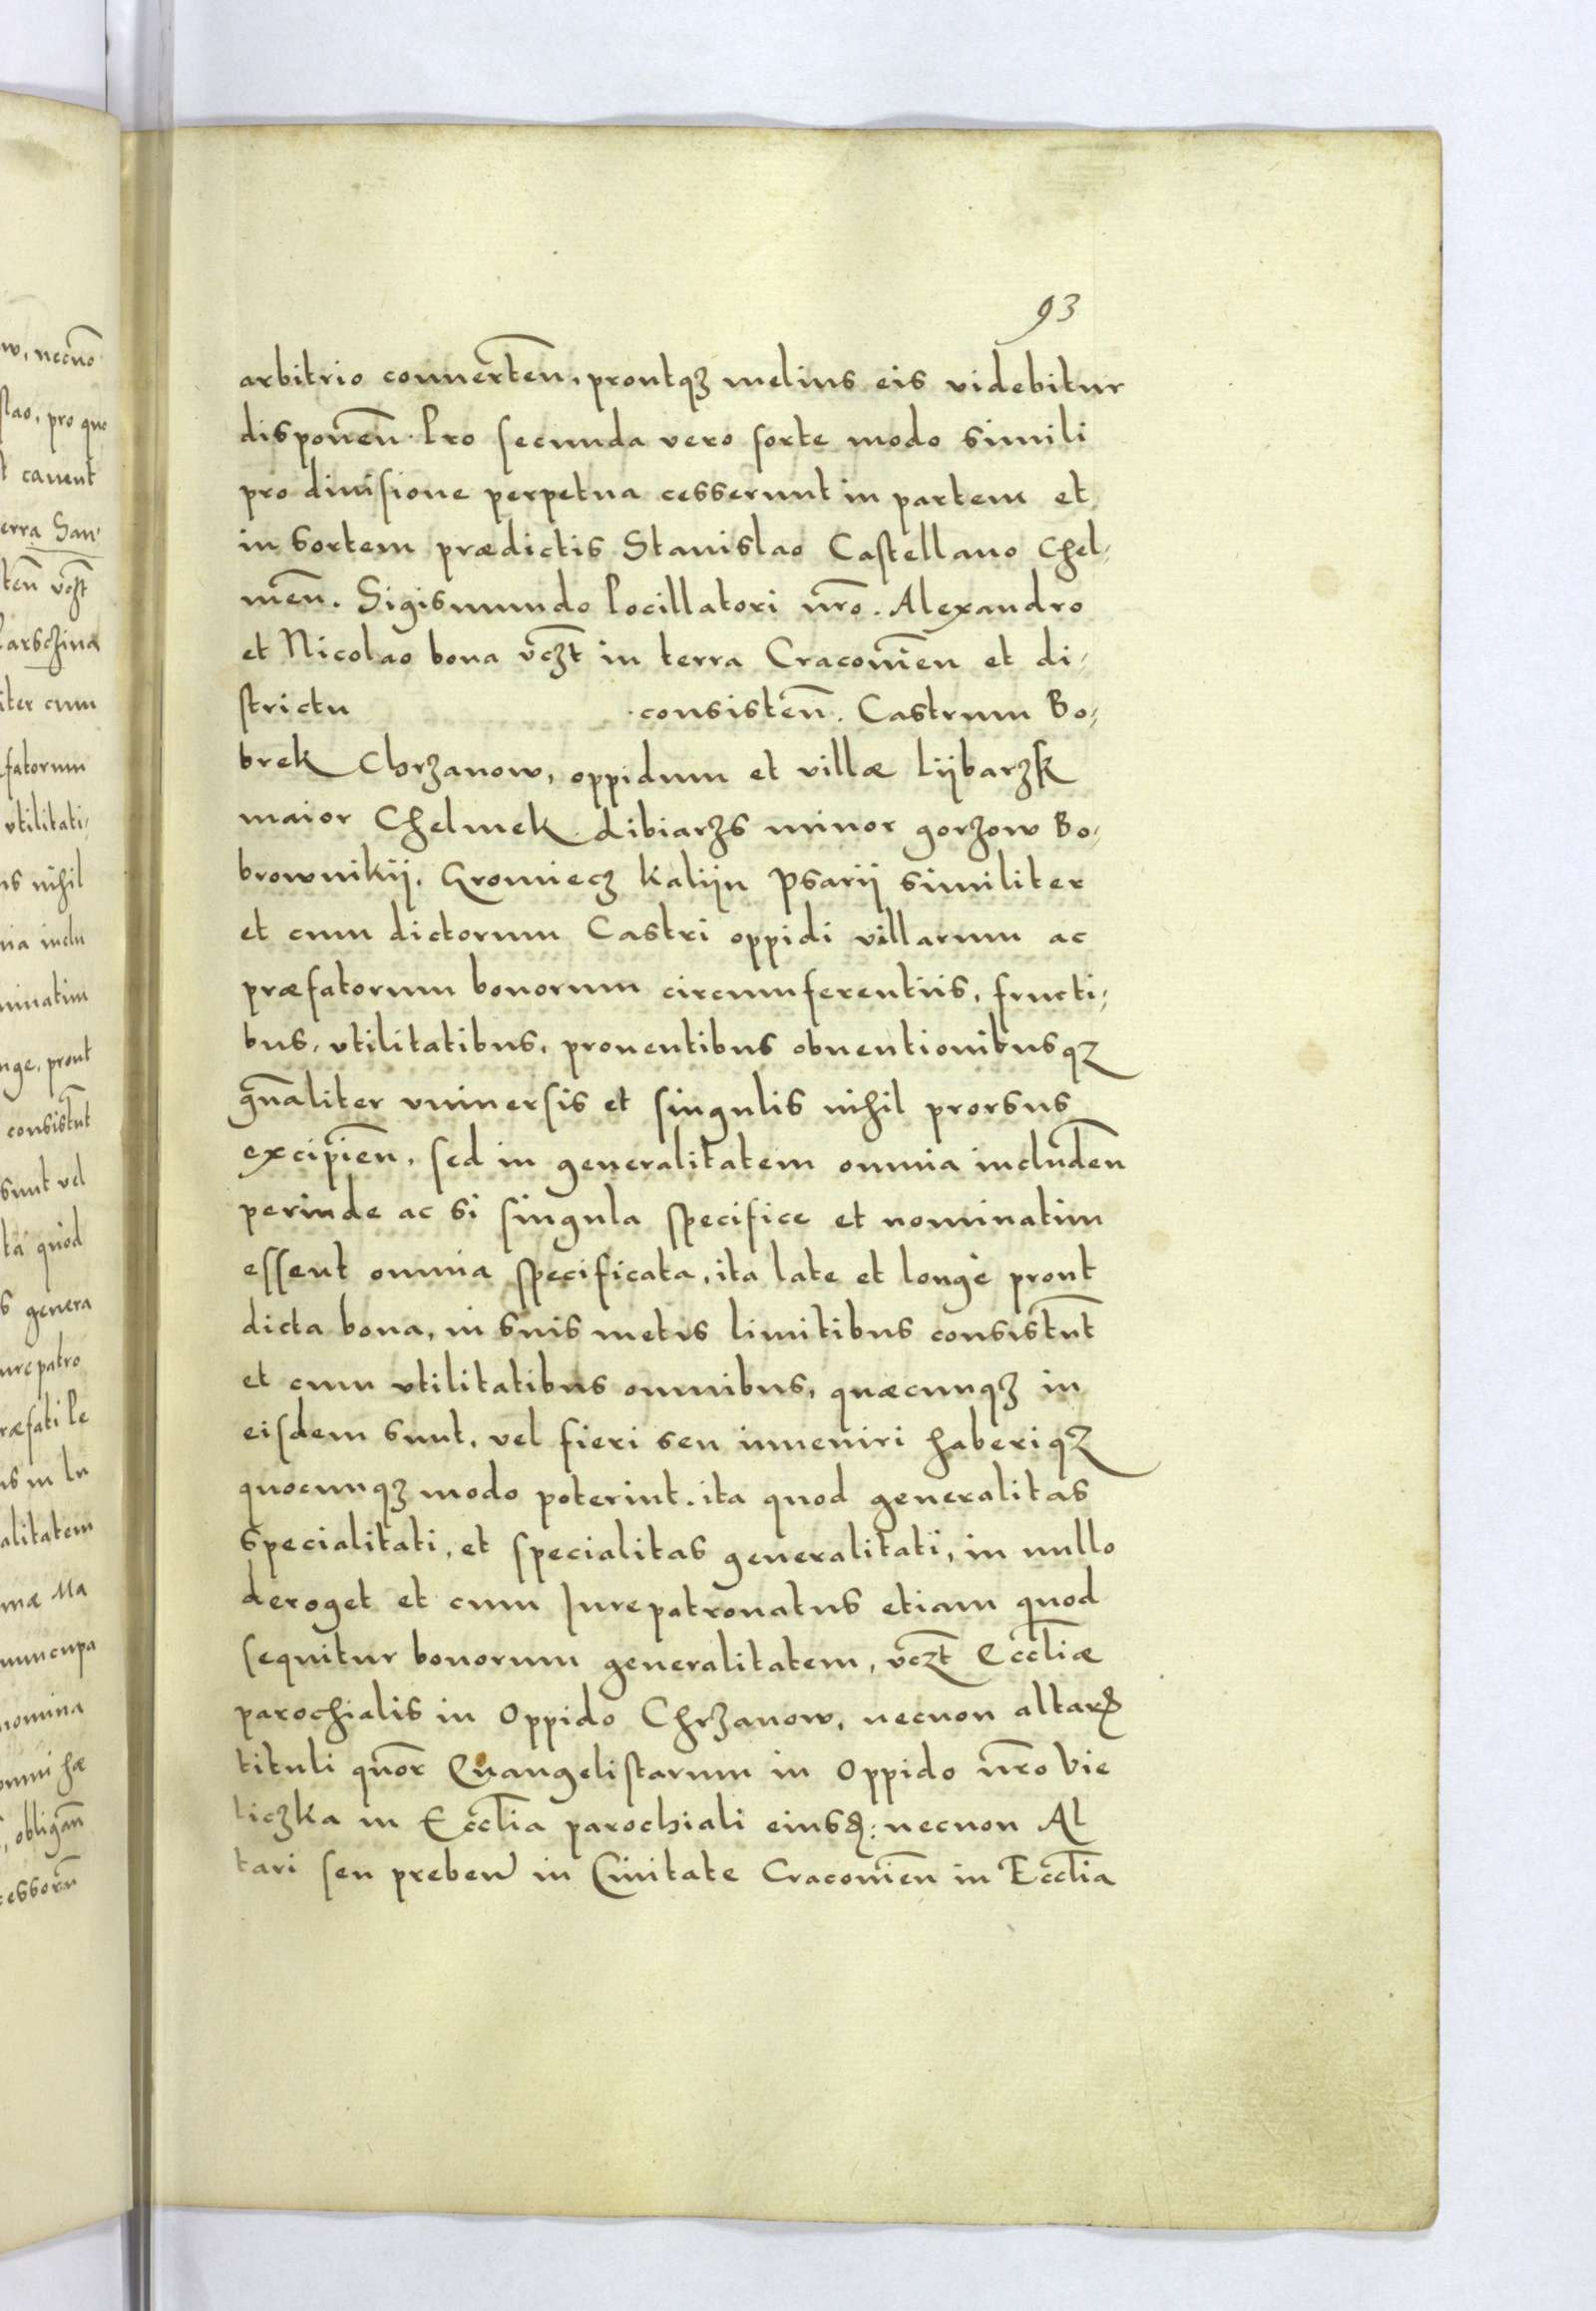 93
w, necno
slao, pro quo
t cauent
erra San-
ten vczt
arsczina
iter cum
fatorum
vtilitati-
us nihil
nia inclu
minatim
nge, prout
consistunt
sunt vel
ta quod
s genera
ure patro
ræfati Pe
us in lu
alitatem
mæ Ma
nuncupa
nomina
omni hæ
, obligan
cessorū
arbitrio conuerten̄, proutqꝫ melius eis videbitur
disponen̄. Pro secunda vero sorte modo simili
pro diuisione perpetua cesserunt in partem et
in sortem prædictis Stanislao Castellano Chel-
men̄. Sigismundo Pocillatori nr̄o. Alexandro
et Nicolao bona vczt in terra Cracouien̄ et di-
strictu consisten̄. Castrum Bo-
brek Chrzanow, oppidum et villæ Lijbarzk
maior Chelmek dibiarzs minor gorzow Bo-
brownikij. Gromiecz Kalijn Psarij similiter
et cum dictorum Castri oppidi villarum ac
præfatorum bonorum circumferentiis, fructi-
bus, vtilitatibus, prouentibus obuentionibusqꝫ
gn̄aliter vniuersis et singulis nihil prorsus
excipien̄, sed in generalitatem omnia includen̄
perinde ac si singula specifice et nominatim
essent omnia specificata, ita late et longè prout
dicta bona, in suis metis limitibus consistūt
et cum vtilitatibus omnibus, quæcunqꝫ in
eisdem sunt, vel fieri seu inueniri haberiqꝫ
quocunqꝫ modo poterint. ita quod generalitas
specialitati, et specialitas generalitati, in nullo
deroget et cum Iurepatronatus etiam quod
sequitur bonorum generalitatem, vczt Eccl̄iæ
parochialis in Oppido Chrzanow, necnon altarꝭ
tituli quor̄ Euangelistarum in Oppido nr̄o Vie
liczka in Eccl̄ia parochiali eiusꝺ: necnon Al
tari seu preben̄ in Ciuitate Cracouien̄ in Eccl̄ia